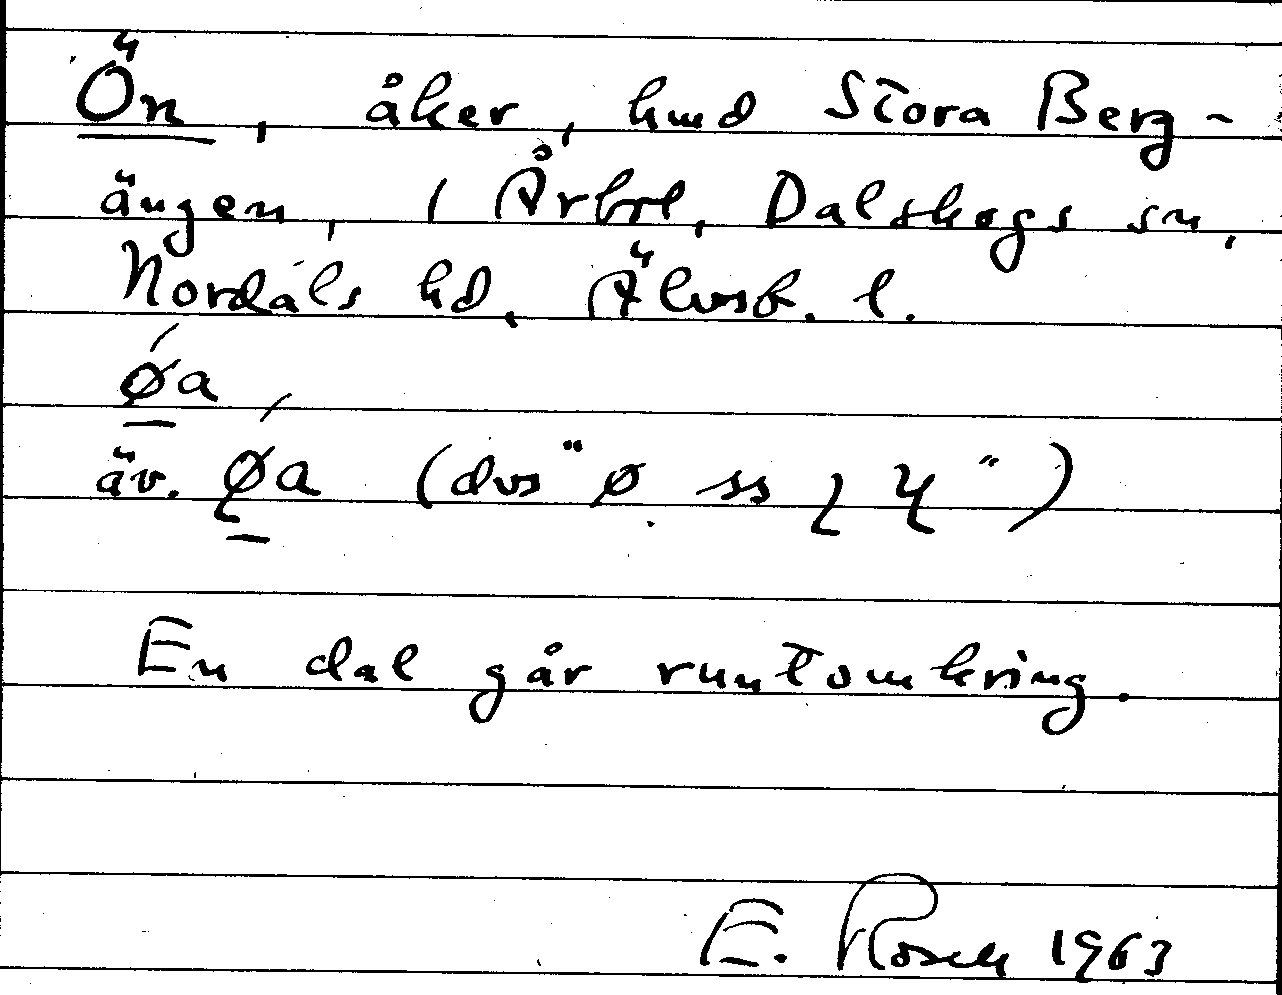 Ön, åker, hmd Stora Berg-
ängen, i Årbol, Dalskogs sn,
Nordals hd, Älvsb. l.
øa,
äv. øa (dvs "ø ss
En dal går runtomkring.
E. Rosell 1963